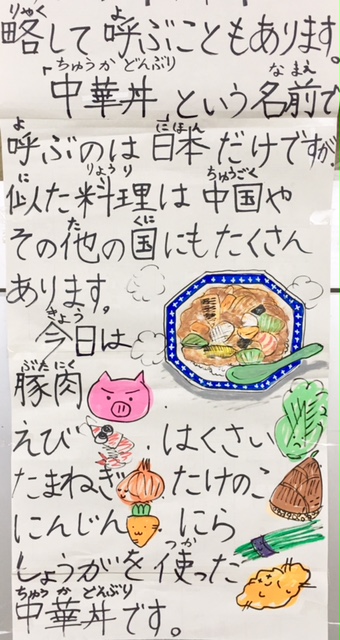 略して呼ぶこともあります。
「中華丼」という名前で
呼ぶのは日本だけですが、
似た料理は中国や
その他の国にもたくさん
あります。
今日は
豚肉
えび・はくさい
たまねぎ・たけのこ
にんじん・にら
しょうがを使った
中華丼です。